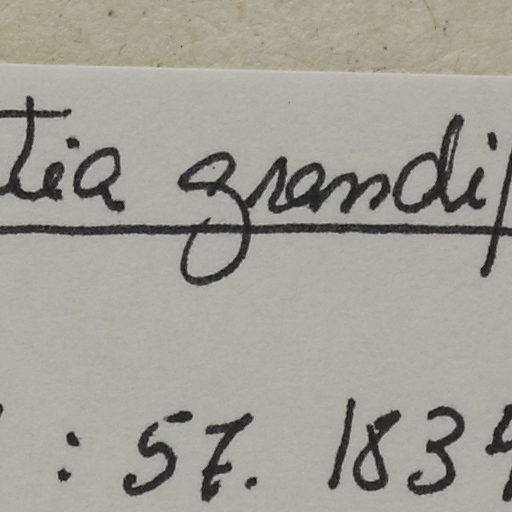 tia grandi
: 57. 183